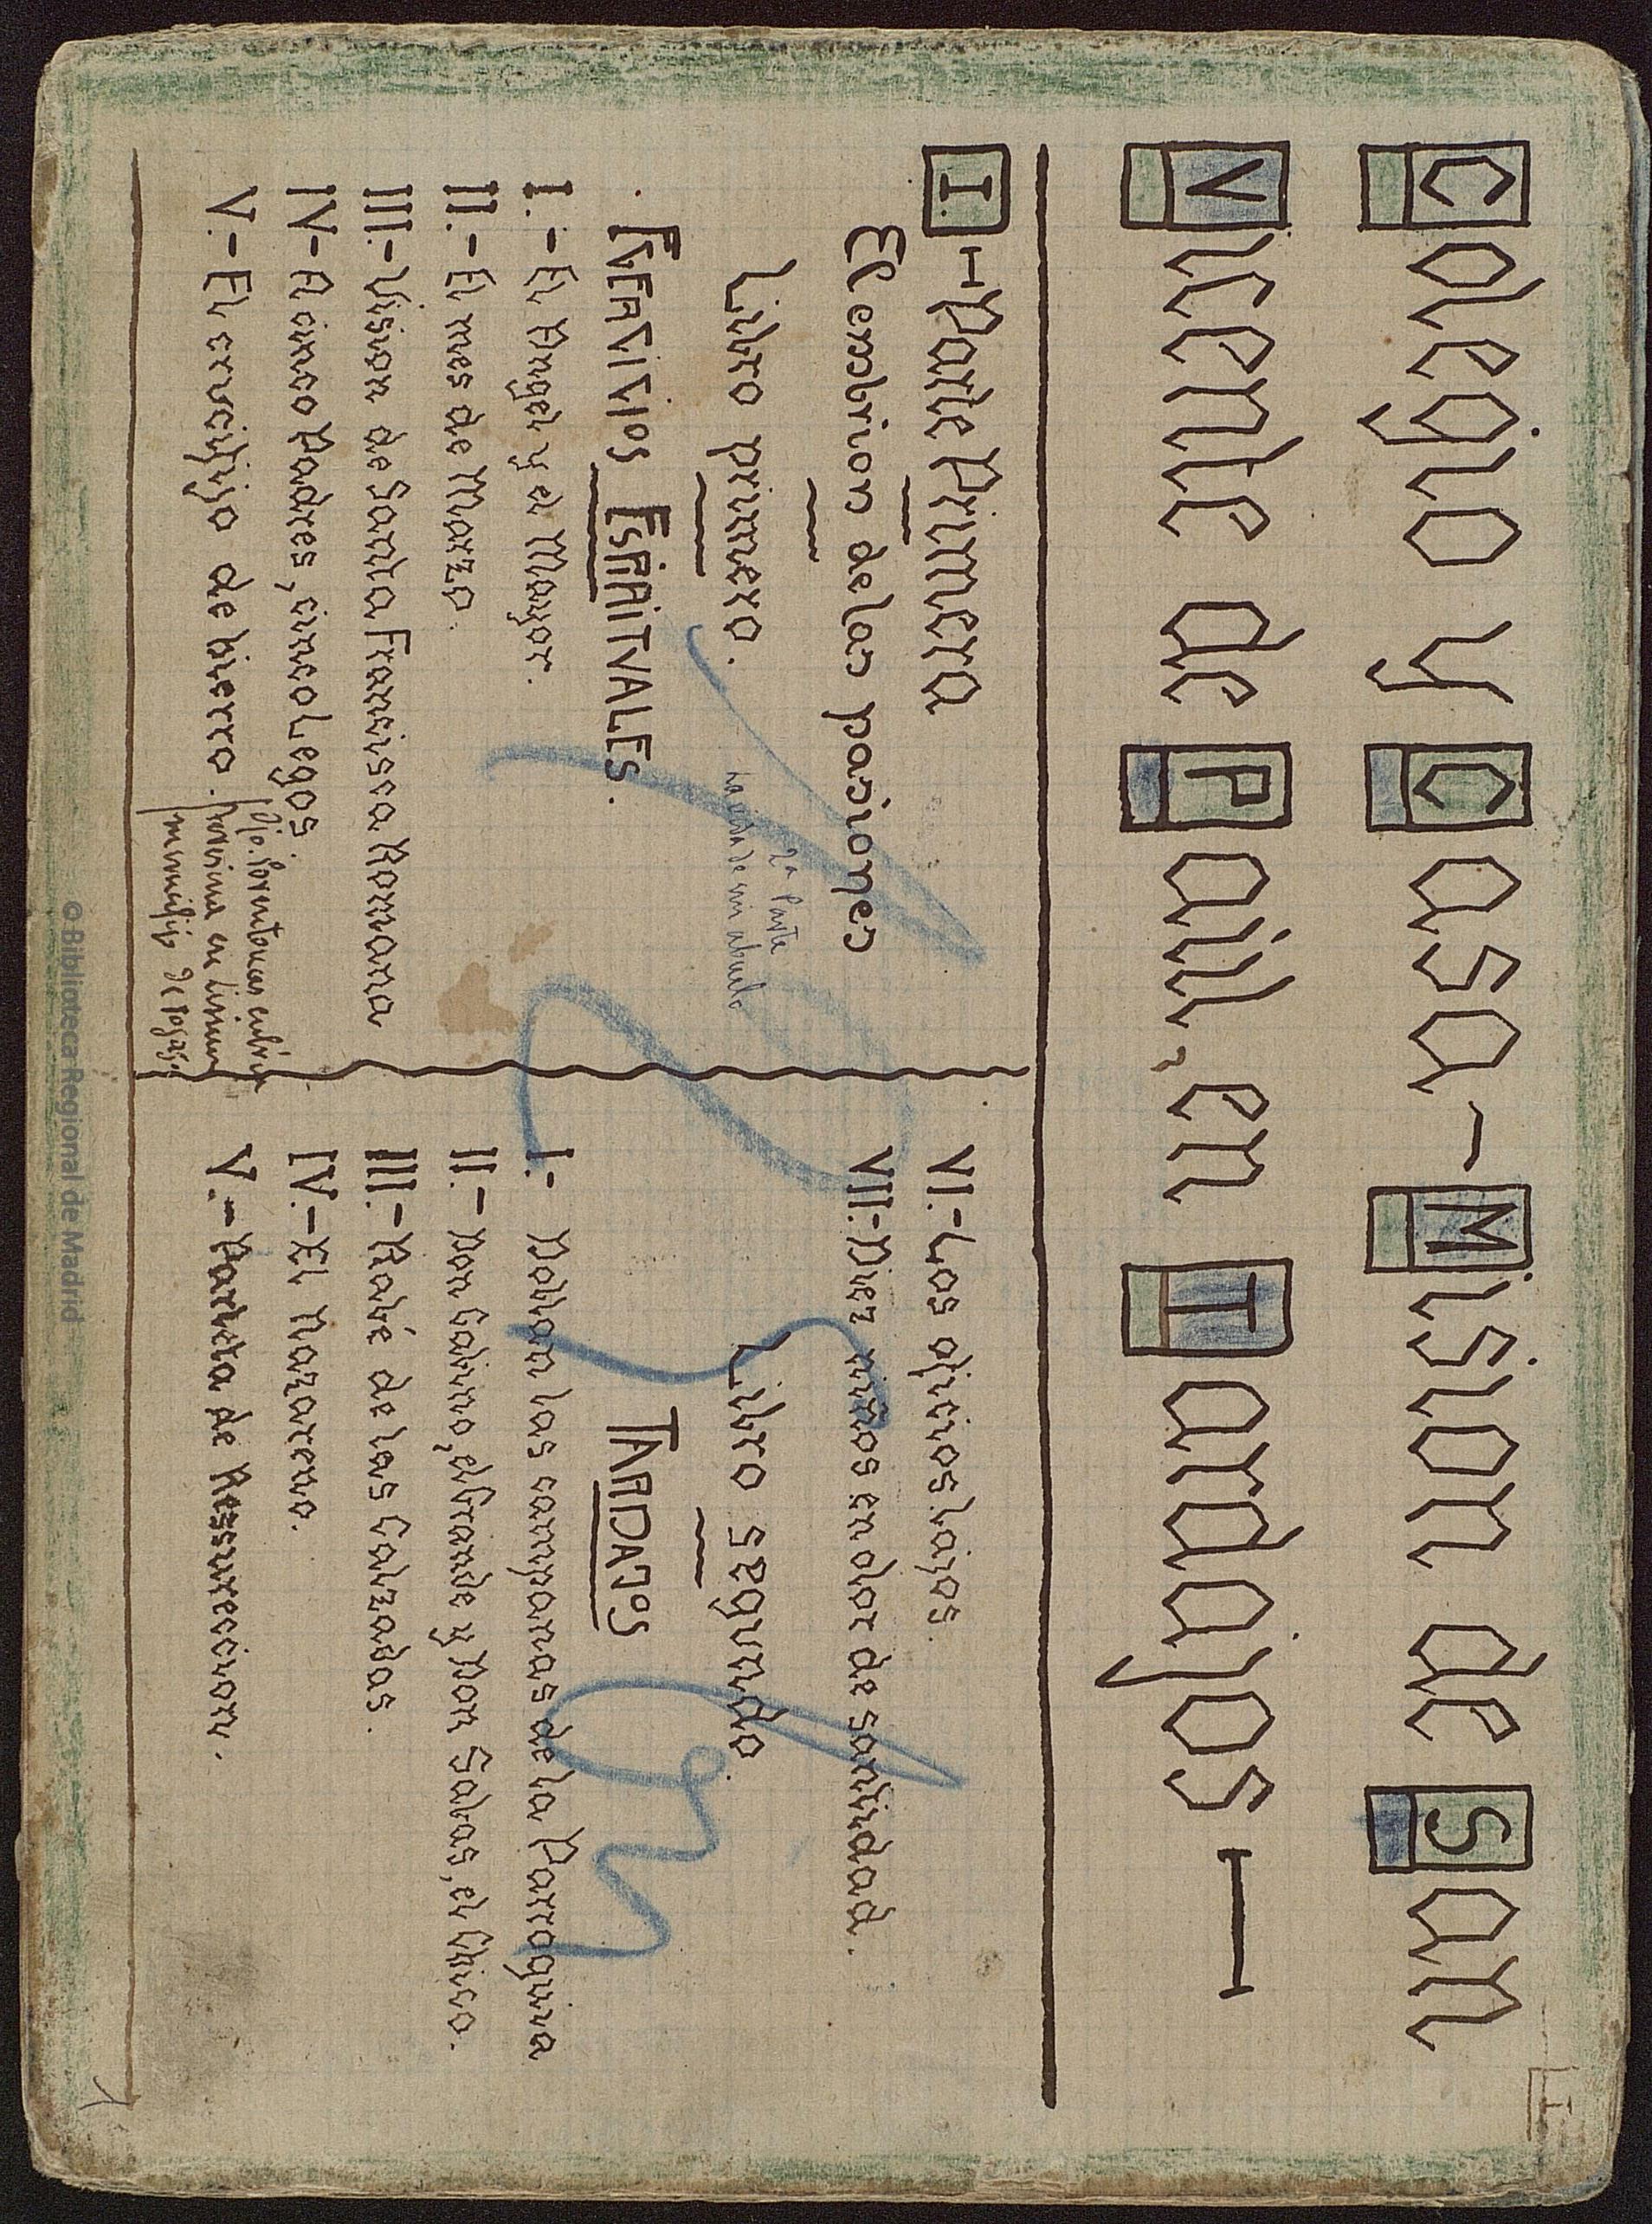 I
Colegio y Casa-Misión de San
Vicente de Paúl, en Tardajos —
I.- Parte Primera
El embrión de las pasiones
Libro primero.
2ª Parte
la casa de mi abuelo
EJERCICIOS ESPIRITUALES.
I.- El Angel y el Mayor.
II.- El mes de Marzo.
III.- Visión de Santa Francisca Romana
IV- El cinco Padres, cinco Legos.
V.- El crucifijo de hierro.
VI.- Los oficios bajos.
VII.- Diez niños en olor de santidad.
Libro segundo.
TARDAJOS
I.- Doblan las campanas de la Parroquia
II.- Don Gabino, el Grande y Don Sabas, el Chico.
III.- Rabé de las Calzadas.
IV.- El Nazareno.
V.- Parleta de Ressurección.
1
© Biblioteca Regional de Madrid